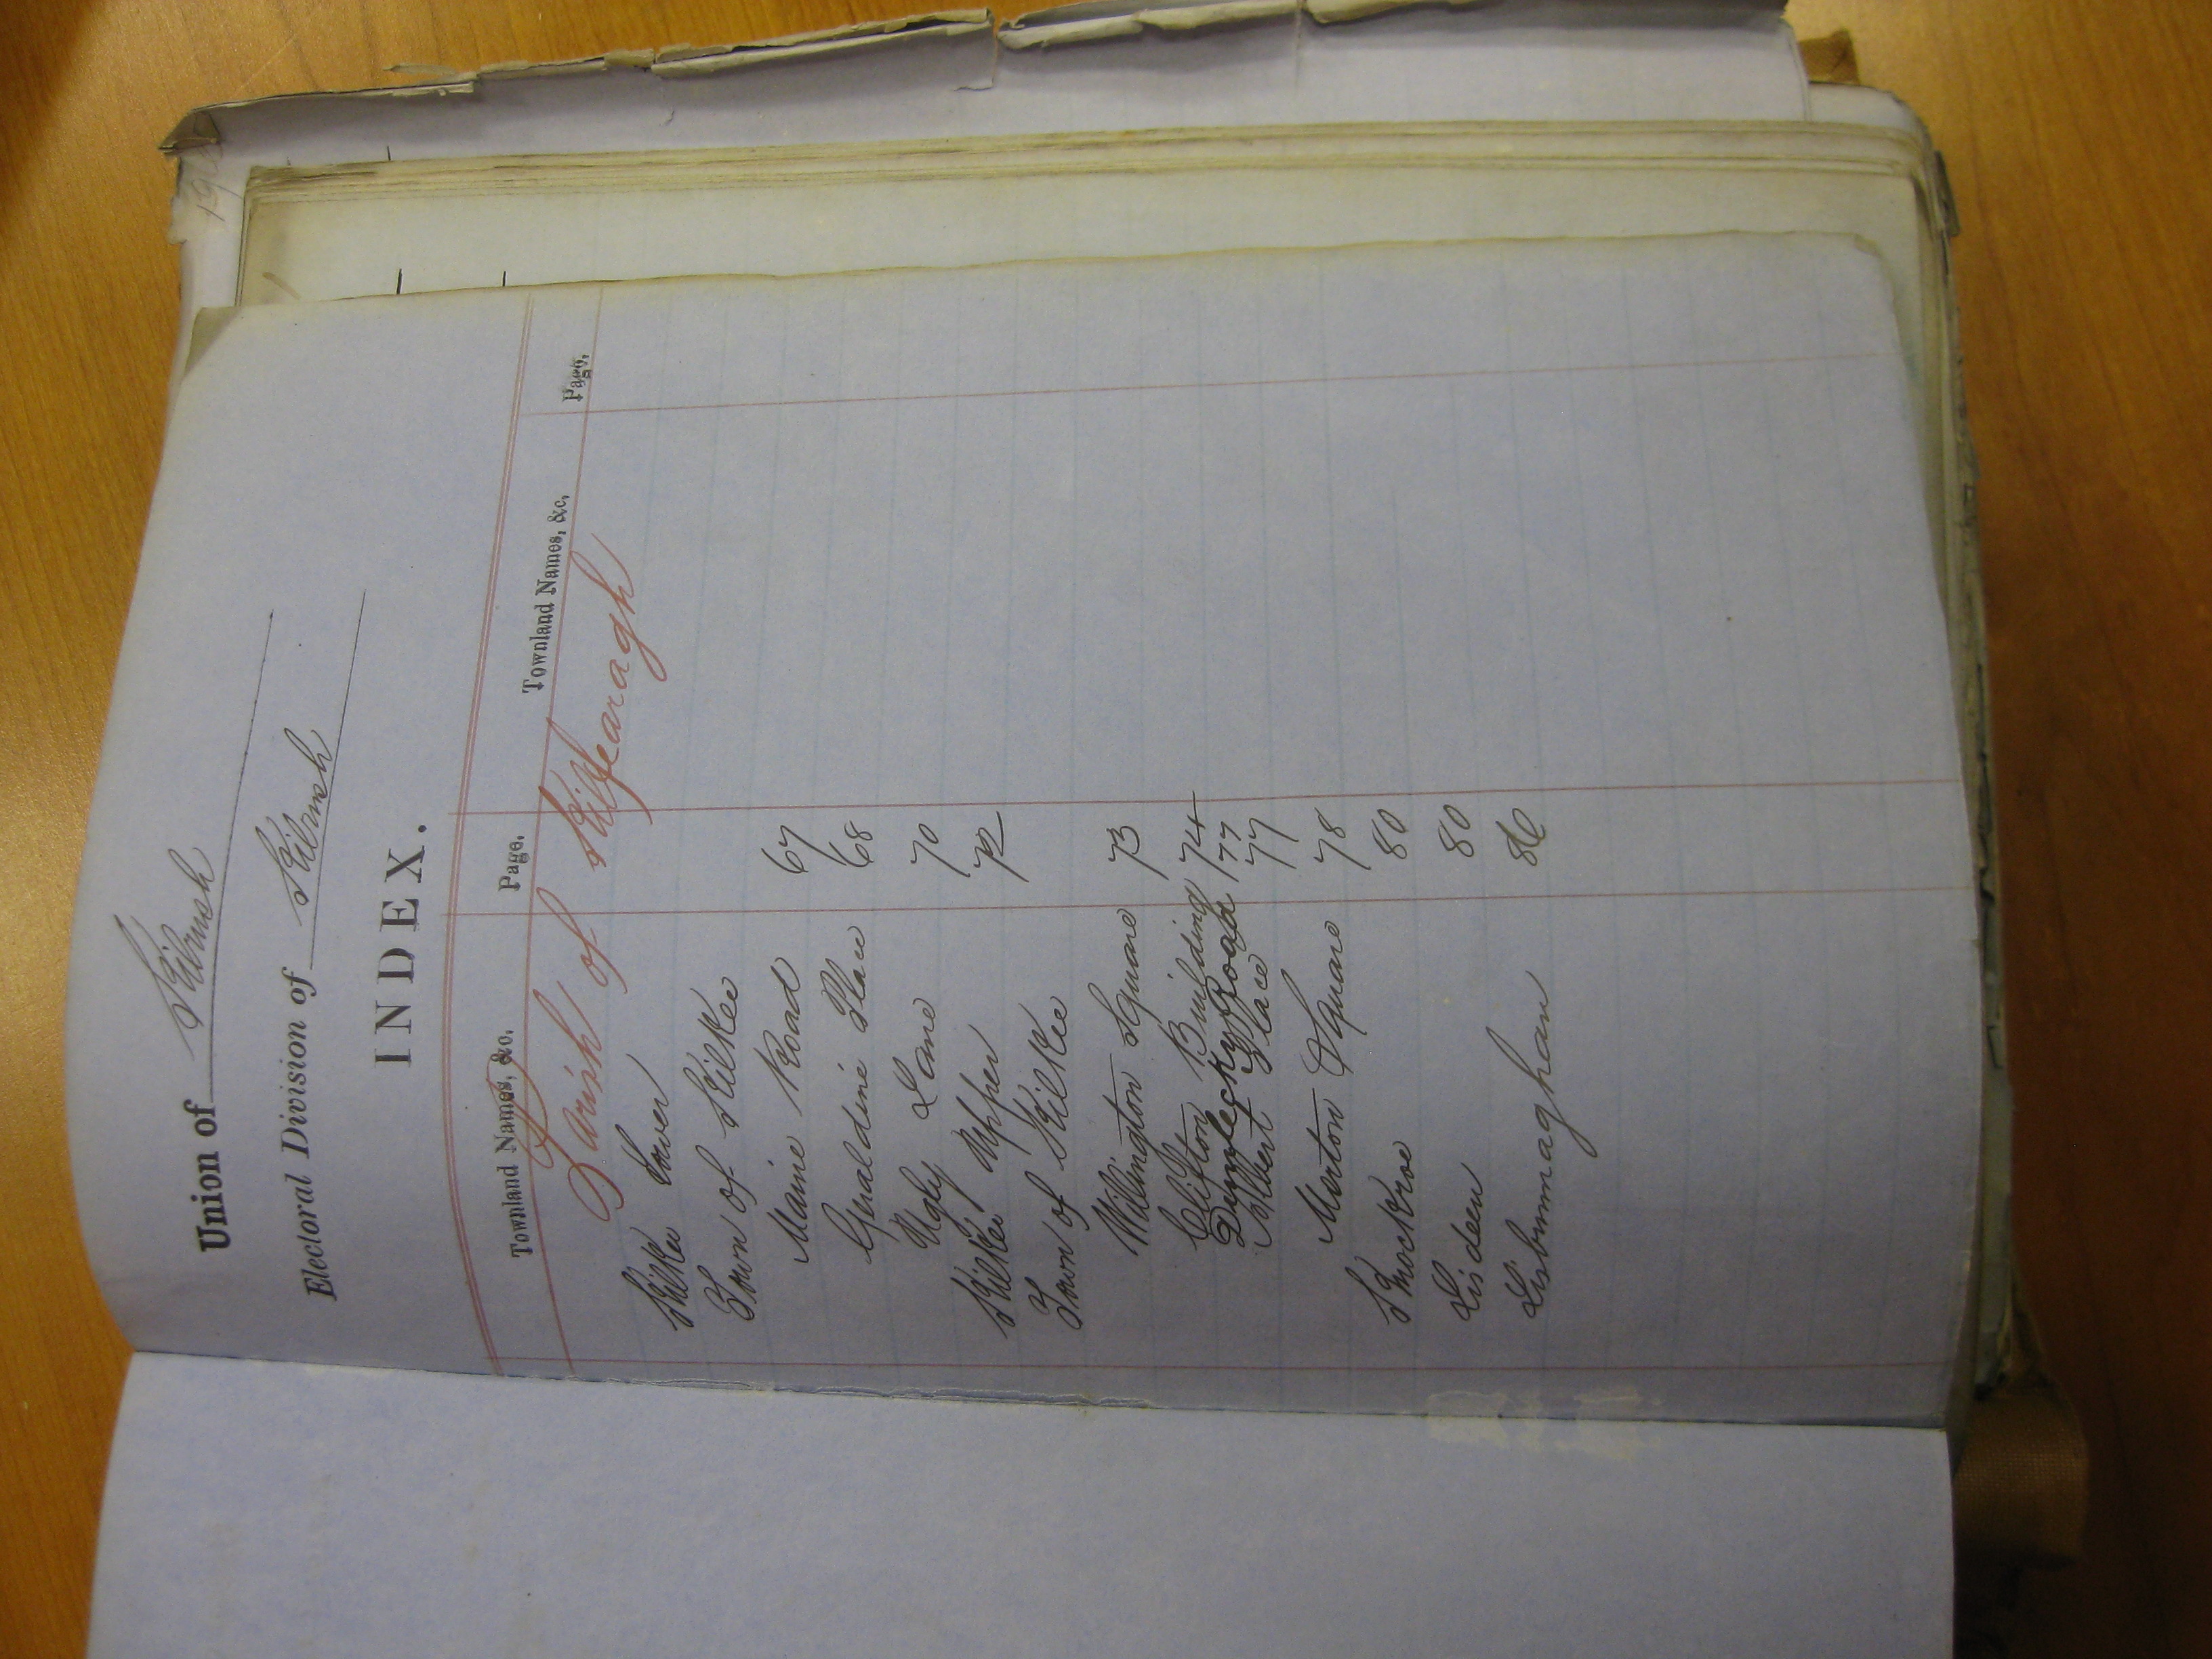 Union of Kilrush
Electoral Division of Kilrush
INDEX.
Townland Names, &c. Page. Townland Names, &c. Page.
Parish of Kilfearagh
Kilkee Lower
Town of Kilkee
Marine Road 67
Geraldine Place 68
Ugly Lane 70
Kilkee Upper 72
Town of Kilkee
Willington Square 73
Clifton Building 74
Dunlecky Road 77
Albert Place 77
Merton Square 78
Knockroe 80
Lisdeen 80
Lisbunmaghan 86